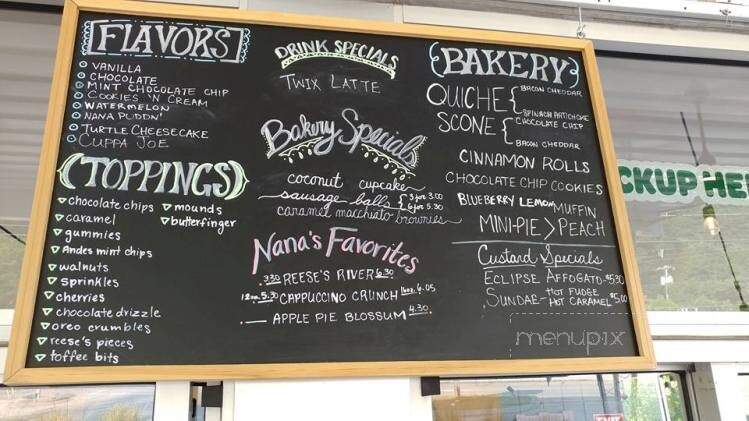 FLAVORS
VANILLA
CHOCOLATE
MINT CHOCOLATE CHIP
COOKIES 'N CREAM
WATERMELON
NANA PUDDN'
TURTLE CHEESECAKE
CUPPA JOE
TOPPINGS
chocolate chips
caramel
gummies
Andes mint chips
walnuts
sprinkles
cherries
chocolate drizzle
oreo crumbles
reese's pieces
toffee bits
mounds
butterfinger
DRINK SPECIALS
TWIX LATTE
Bakery Specials
coconut cupcake
sausage balls 3 for 3.00
6 for 5.30
caramel macchiato brownies
Nana's Favorites
REESE'S RIVER 6.30
12oz. 5.30 CAPPUCCINO CRUNCH 16oz. 6.05
APPLE PIE BLOSSUM 4.30
BAKERY
QUICHE BACON CHEDDAR
SPINACH ARTICHOKE
SCONE CHOCOLATE CHIP
BACON CHEDDAR
CINNAMON ROLLS
CHOCOLATE CHIP COOKIES
BLUEBERRY LEMON MUFFIN
MINI-PIE > PEACH
Custard Specials
ECLIPSE AFFOGATO-$5.30
SUNDAE- HOT FUDGE
HOT CARAMEL
menupix
CKUP HE
EXIT